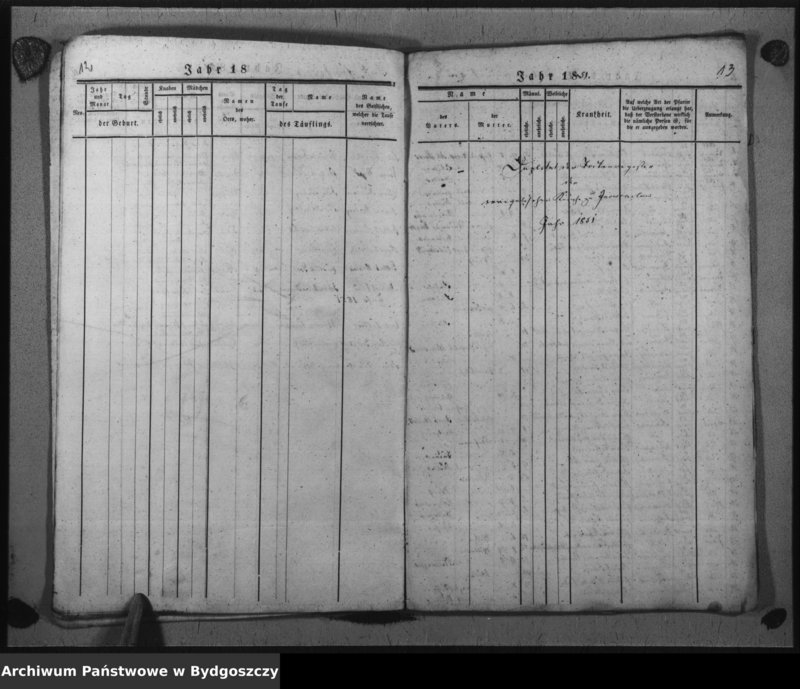 12
Jahr 18
Nro.
Jahr und Monat
Tag
Stunde
der Geburt.
Knaben
ehelich
unehelich
Mädchen
ehelich
unehelich
Namen des Orts, woher.
Tag der Taufe
Name
des Täuflings.
Name des Geistlichen, welcher die Taufe verrichtet.
13
Jahr 1851.
Name
des Vaters.
der Mutter.
Männl.
eheliche.
uneheliche.
Weibliche
eheliche.
uneheliche.
Krankheit.
Auf welche Art der Pfarrer
die Ueberzeugung erlangt hat,
daß der Verstorbene wirklich
die nämliche Person ist, für
die er ausgegeben worden.
Anmerkung.
Duplikat des Todtenregister
der
evangelischen Kirche zu
Jahr 1851
Archiwum Państwowe w Bydgoszczy